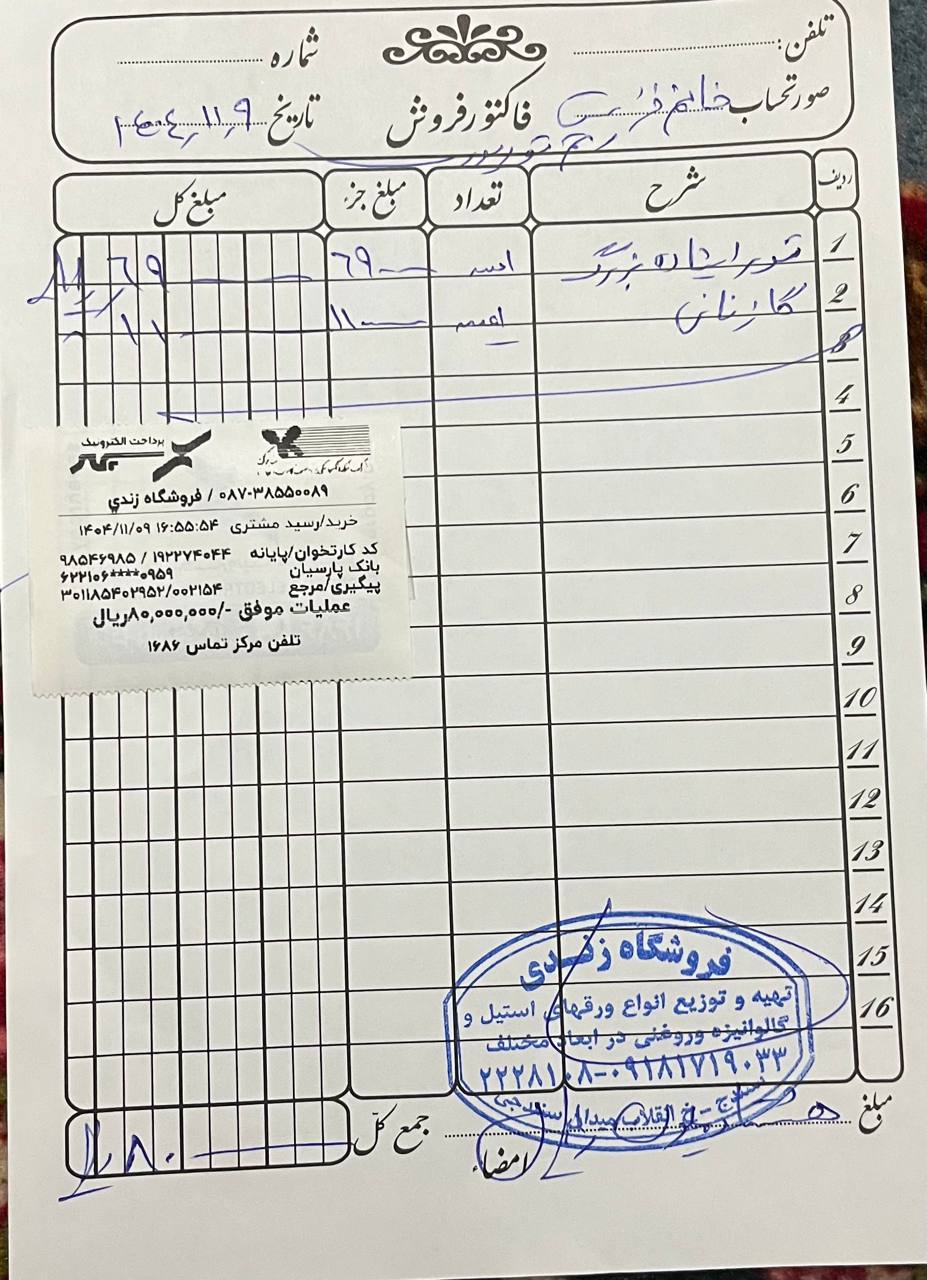 تلفن:
شماره
صورتحساب خانم
فاکتور فروش
تاریخ ۱۴۰۴,۱۱,۹
ردیف شرح تعداد مبلغ جزء مبلغ کل
1 تنور ایستاده بزرگ ۶۹ ۶۹
2 گاز نانی ۱۱ ۱۱
3
4
5
6
7
8
9
10
11
12
13
14
15
16
پرداخت الکترونیک
۰۸۷-۳۸۵۵۰۰۸۹ / فروشگاه زندي
خرید/رسید مشتری ۱۶:۵۵:۵۴ ۱۴۰۴/۱۱/۰۹
کد کارتخوان/پایانه ۱۹۲۲۷۴۰۴۴ / ۹۸۵۴۶۹۸۵
بانک پارسیان ۶۲۲۱۰۶****۰۹۵۹
پیگیری/مرجع ۳۰۱۱۸۵۴۰۲۹۵۲/۰۰۲۱۵۴
عملیات موفق -/۸۰,۰۰۰,۰۰۰ریال
تلفن مرکز تماس ۱۶۸۶
فروشگاه زندی
تهیه و توزیع انواع ورقهای استیل و
گالوانیزه وروغنی در ابعاد مختلف
۲۲۲۸۱۰۸-۰۹۱۸۱۷۱۹۰۳۳
سنندج - خ انقلاب میدان
مبلغ
جمع کل ۸۰
امضاء